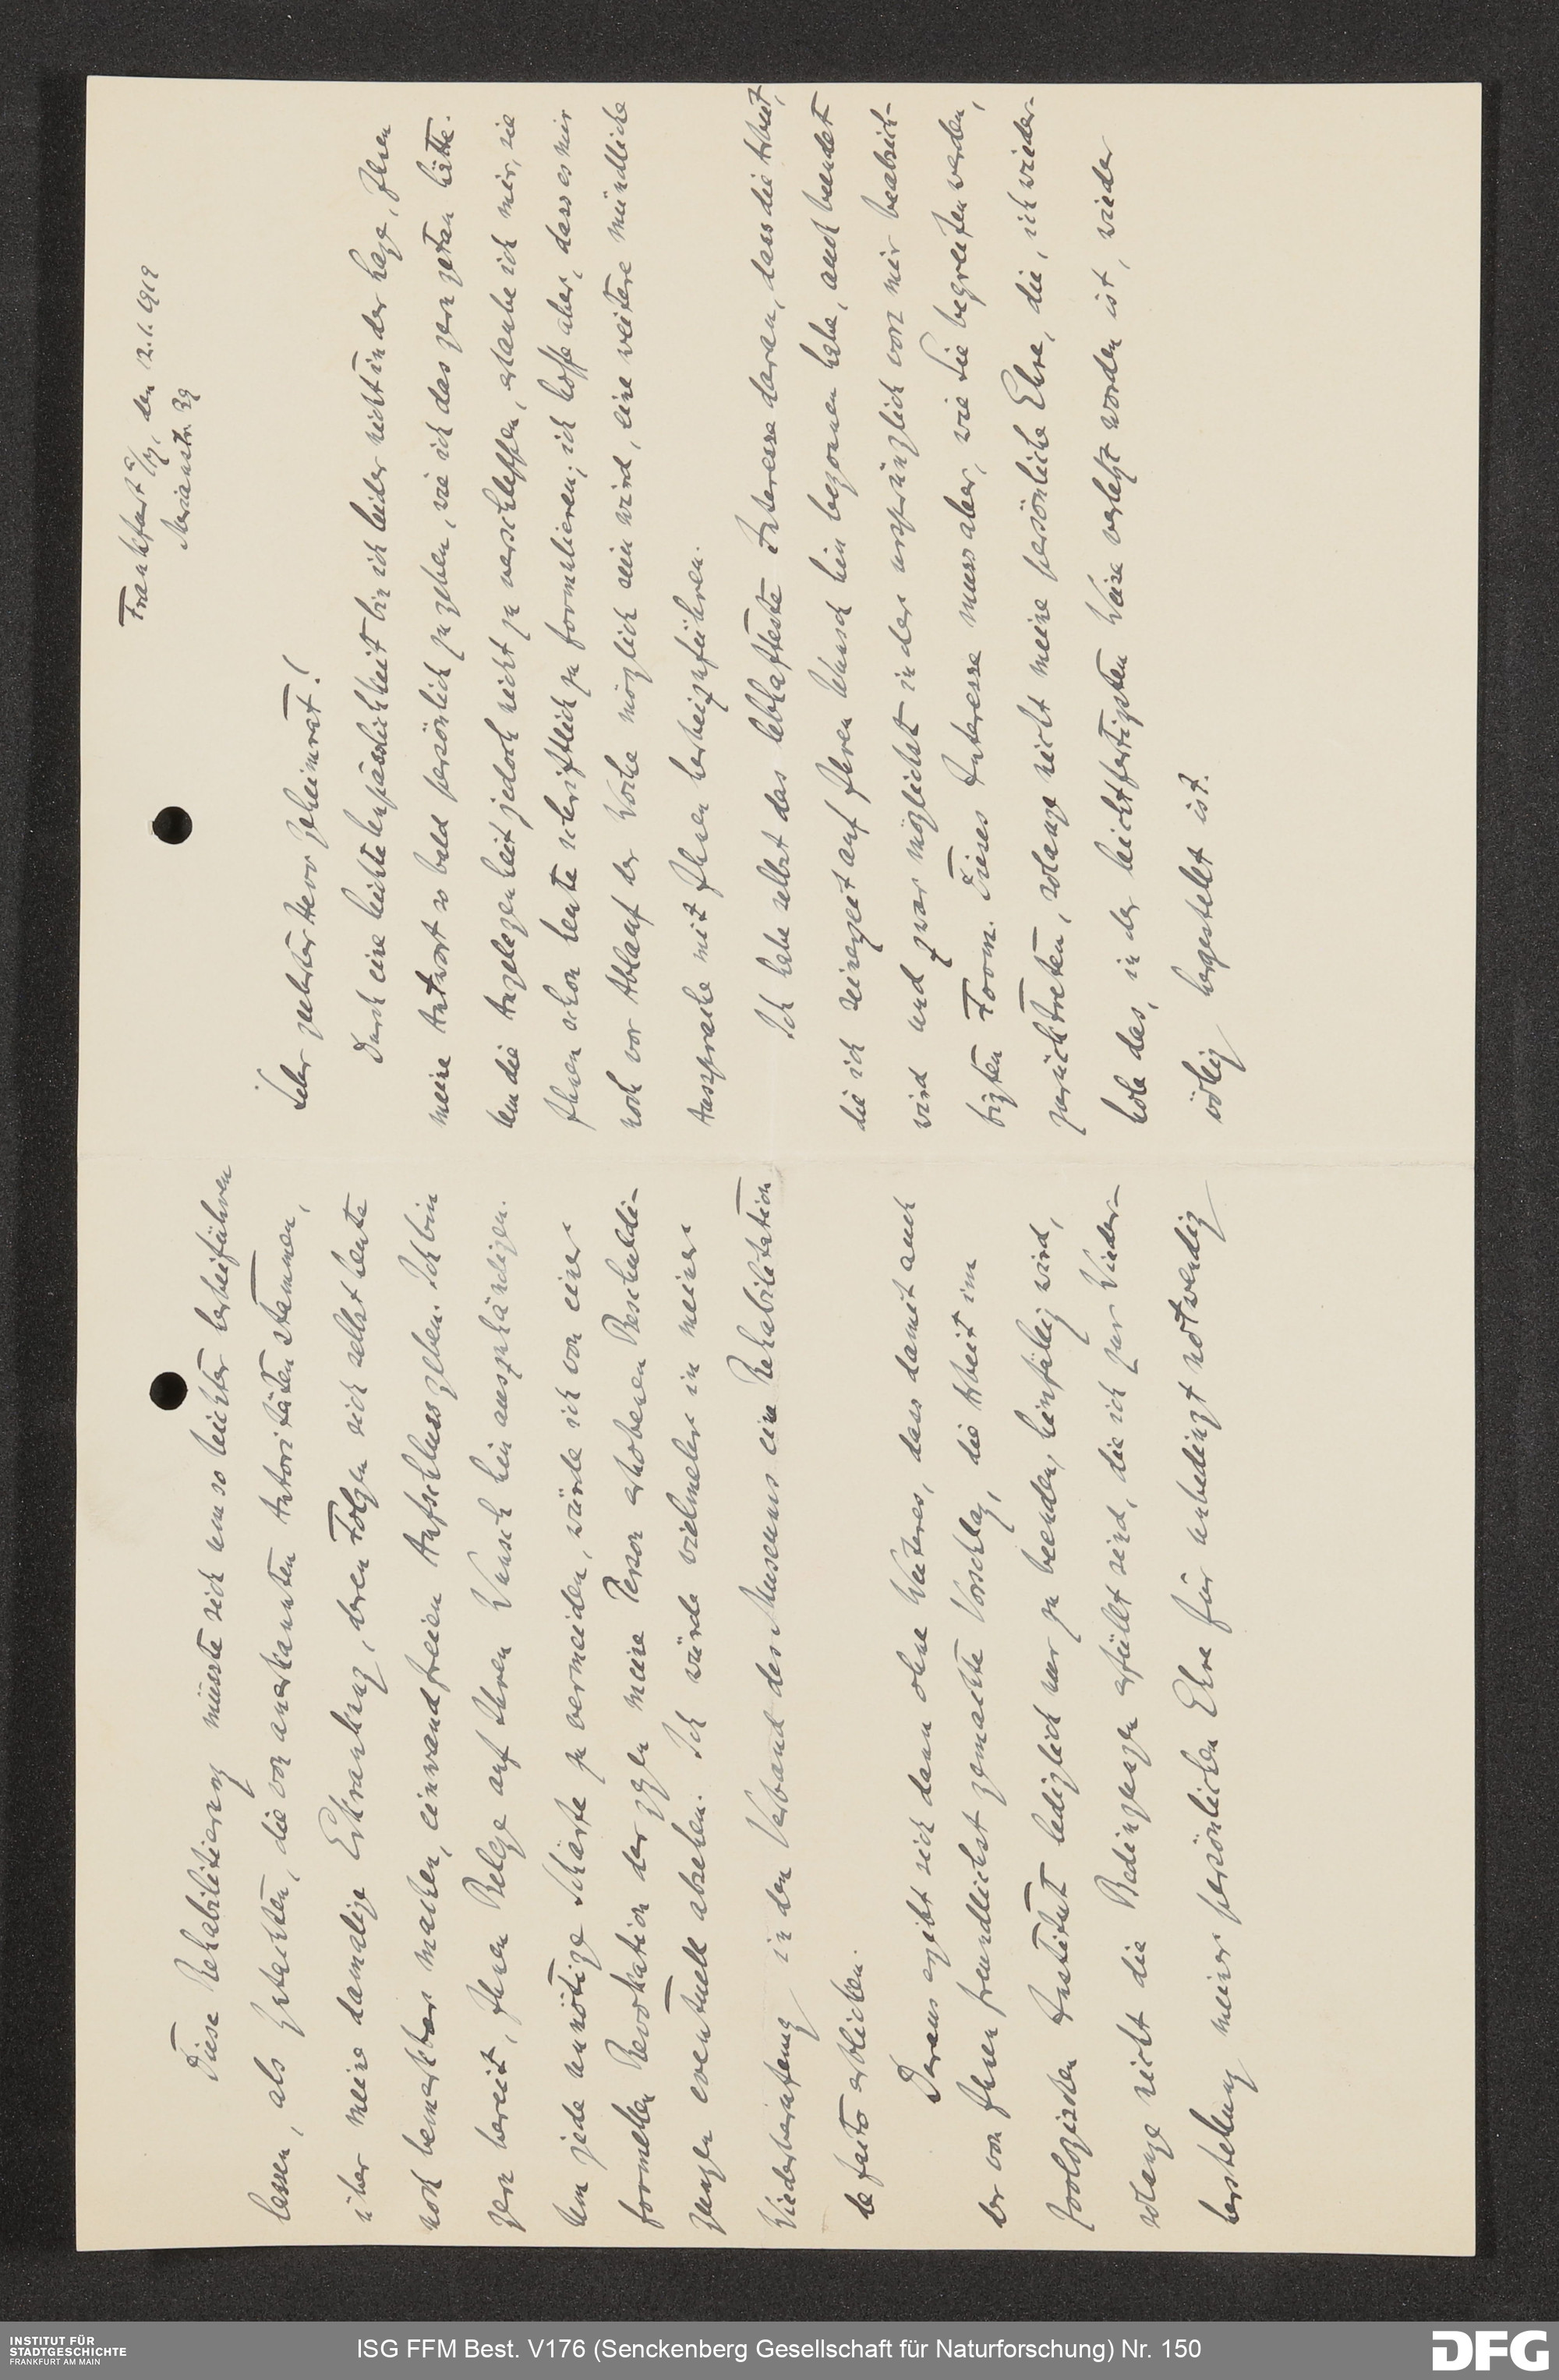 Frankfurt a/M, den 2.1.1919
Merianstr. 39
Sehr geehrter Herr Geheimrat!
Durch eine leichte Unpässlichkeit bin ich leider nicht in der Lage, Ihnen
meine Antwort so bald persönlich zu geben, wie ich das gern getan hätte.
Um die Angelegenheit jedoch nicht zu verschleppen, erlaube ich mir, sie
Ihnen schon heute schriftlich zu formulieren; ich hoffe aber, dass es mir
noch vor Ablauf der Woche möglich sein wird, eine weitere mündliche
Aussprache mit Ihnen herbeizuführen.
Ich habe selbst das lebhafteste Interesse daran, dass die Arbeit,
die ich seinerzeit auf Ihren Wunsch hin begonnen habe, auch beendet
wird und zwar möglichst in der ursprünglich von mir beabsich-
tigten Form. Dieses Interesse muss aber, wie Sie begreifen werden,
zurücktreten, solange nicht meine persönliche Ehre, die, ich wieder-
hole das, in der leichtfertigsten Weise verletzt worden ist, wieder
völlig hergestellt ist.
Diese Rehabilitierung müsste sich um so leichter herbeiführen
lassen, als Gutachten, die von anerkannten Autoritäten stammen,
über meine damalige Erkrankung, deren Folgen sich selbst heute
noch bemerkbar machen, einwandfreien Aufschluss geben. Ich bin
gern bereit, Ihnen Belege auf Ihren Wunsch hin auszuhändigen.
Um jede unnötige Schärfe zu vermeiden, würde ich von einer
formellen Revokation der gegen meine Person erhobenen Beschuldi-
gungen eventuell absehen. Ich würde vielmehr in meiner
Wiederberufung in den Verband des Museums eine Rehabilitation
de facto erblicken.
Daraus ergibt sich dann ohne Weiteres, dass damit auch
der von Ihnen freundlichst gemachte Vorschlag, die Arbeit im
Zoologischen Institut lediglich nur zu beenden, hinfällig wird,
solange nicht die Bedingungen erfüllt sind, die ich zur Wieder-
herstellung meiner persönlichen Ehre für unbedingt notwendig
INSTITUT FÜR
STADTGESCHICHTE
FRANKFURT AM MAIN
ISG FFM Best. V176 (Senckenberg Gesellschaft für Naturforschung) Nr. 150
DFG